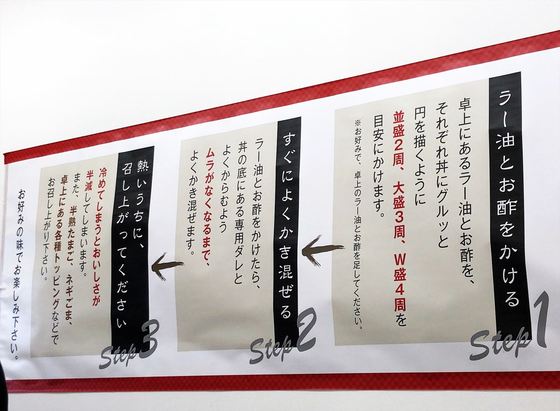 ラー油とお酢をかける
卓上にあるラー油とお酢を、
それぞれ丼にグルッと
円を描くように
並盛2周、大盛3周、W盛4周を
目安にかけます。
※お好みで、卓上のラー油とお酢を足してください。
Step1
すぐによくかき混ぜる
ラー油とお酢をかけたら、
丼の底にある専用ダレと
よくからむよう
ムラがなくなるまで、
よくかき混ぜます。
Step2
熱いうちに、
召し上がってください
冷めてしまうとおいしさが
半減してしまいます。
また、半熟たまご、ネギごま、
卓上にある各種トッピングなどで
お召し上がり下さい。
Step3
お好みの味でお楽しみ下さい。